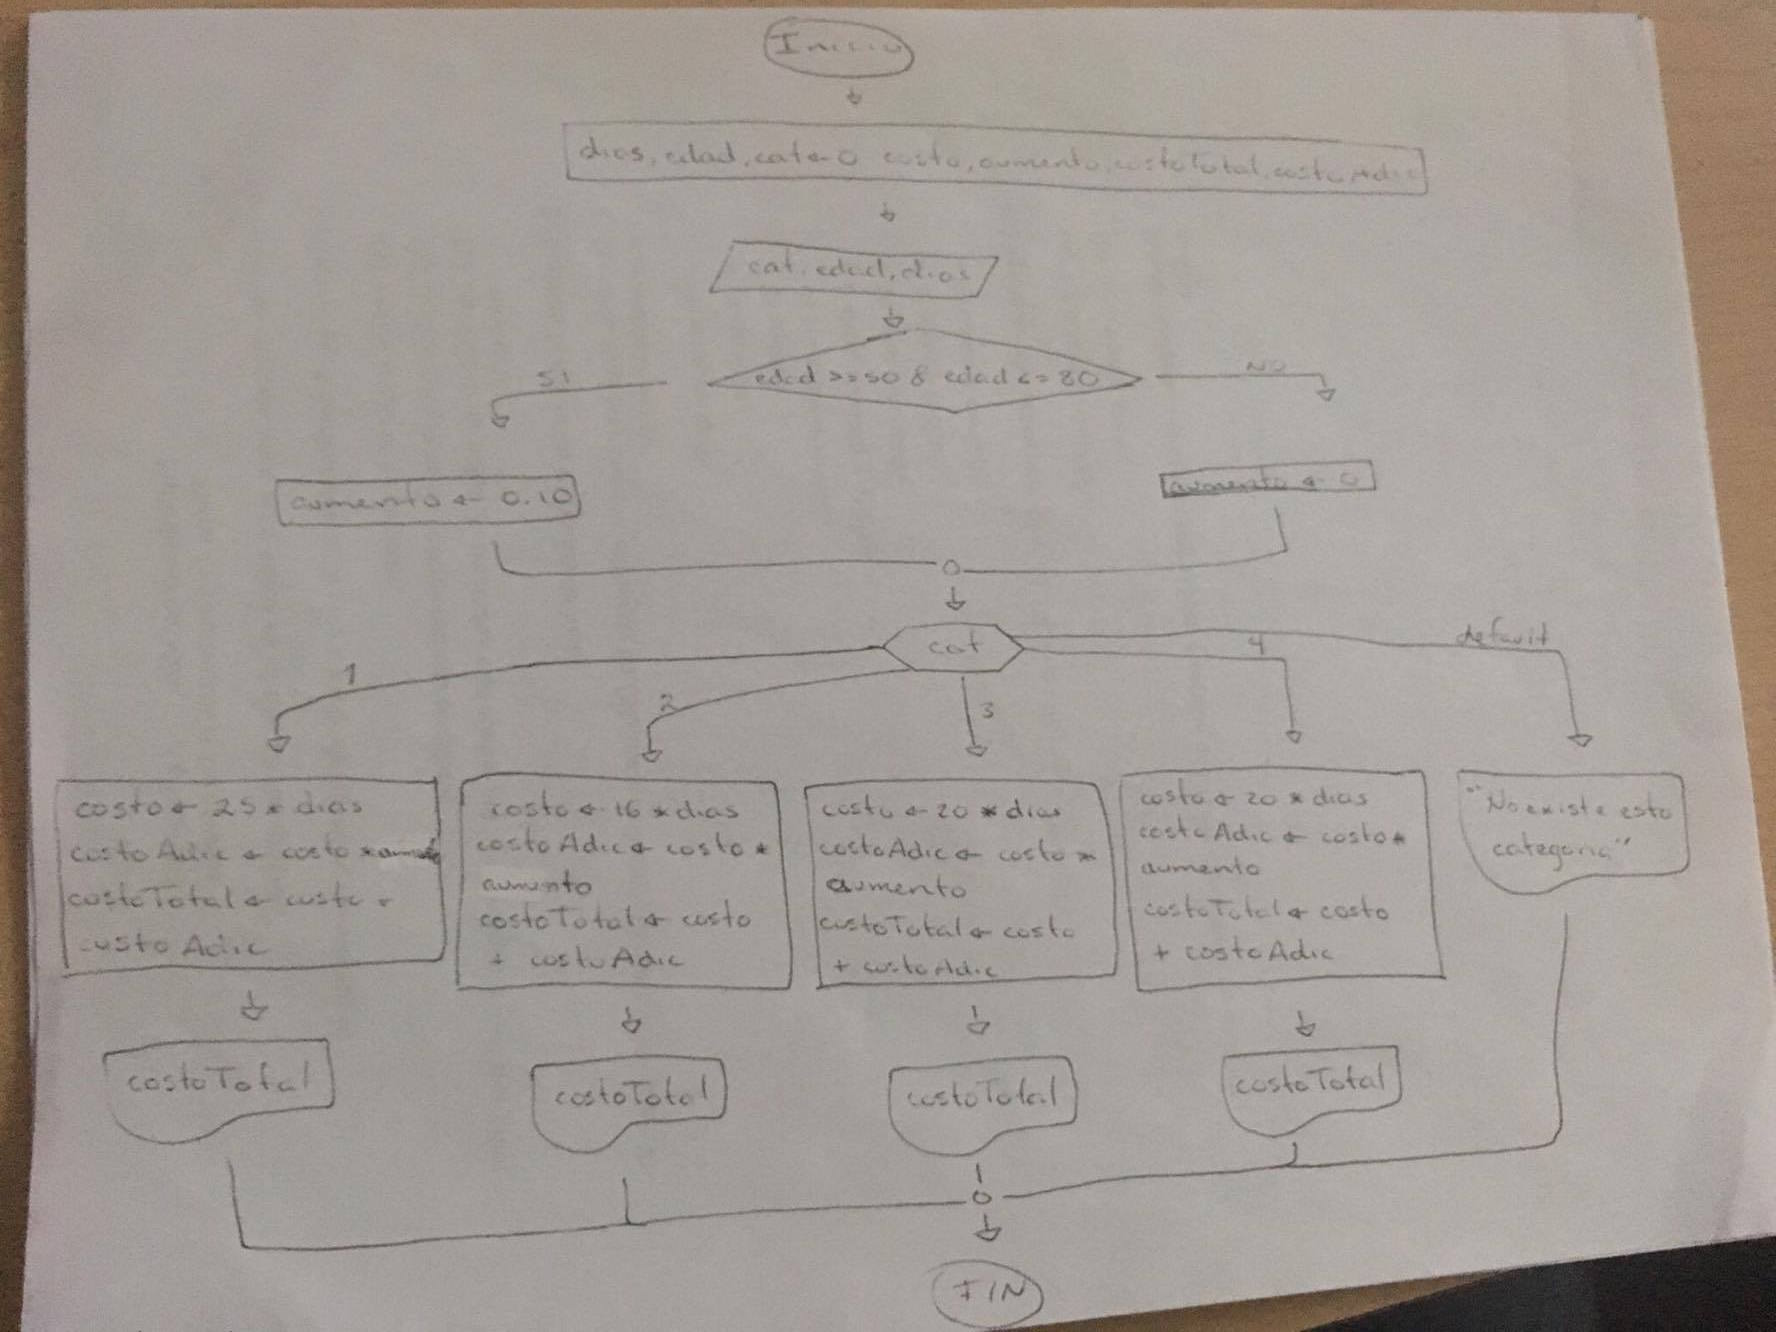 Inicio
dias, edad, cat ← 0 costo, aumento, costoTotal, costoAdic
cat, edad, dias
edad >= 50 & edad <= 80
SI
NO
aumento ← 0.10
aumento ← 0
cat
1
2
3
4
default
costo ← 25 * dias
costoAdic ← costo * aumento
costoTotal ← costo +
costo Adic
costo ← 16 * dias
costoAdic ← costo *
aumento
costoTotal ← costo
+ costoAdic
costo ← 20 * dias
costoAdic ← costo *
aumento
costoTotal ← costo
+ costoAdic
costo ← 20 * dias
costoAdic ← costo *
aumento
costoTotal ← costo
+ costoAdic
"No existe esta
categoria"
costoTotal
costoTotal
costoTotal
costoTotal
FIN